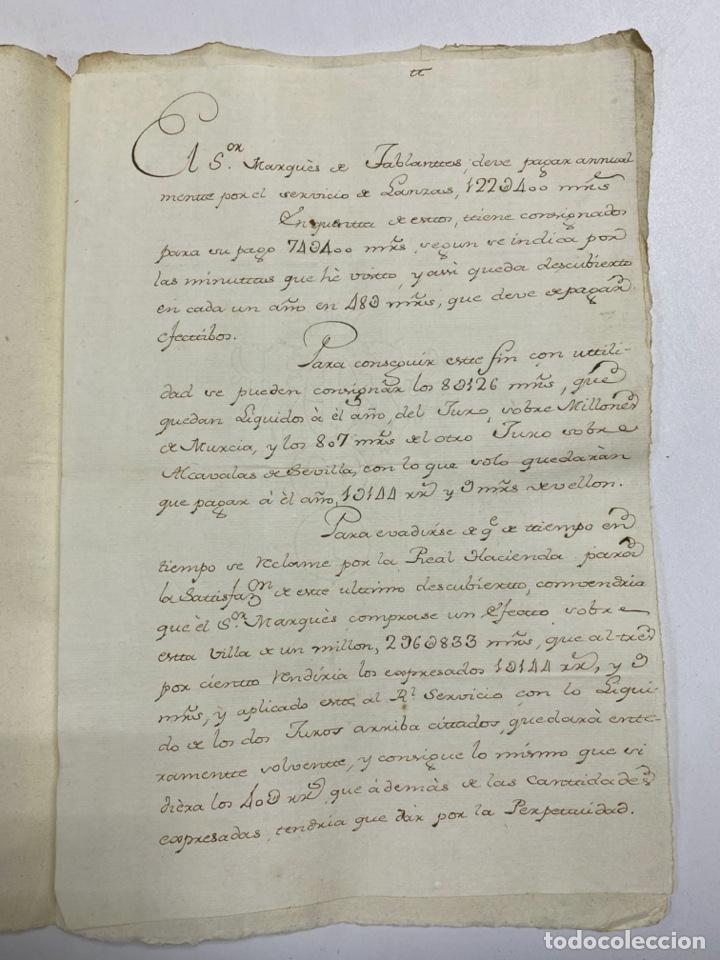 tt
El S.or Marquès de Tablanttes, deve pagar annual
mentte por el servicio de Lanzas, 122Ɔ400 mrs̃
En quentta de esttos, ttiene consignados
para su pago 74Ɔ400 mrs̃, segun se indica por
las minuttas que hè visto, y assi queda descubierto
en cada un año en 48Ɔ mrs̃, que deve de pagar
efecttibos.
Para conseguir estte fin con uttili-
dad se pueden consignar los 8Ɔ126 mrs̃, que
quedan Liquidos à èl año, del Juro, sobre Millones
de Murcia, y los 807 mrs̃ de el otro Juro sobre
Alcavalas de Sevilla, con lo que solo quedaràn
que pagar à èl año, 1Ɔ144 rr̃ y 9 mrs̃ de vellon.
Para evadirse de q.e de ttiempo en
ttiempo se reclame por la Real Hacienda para
la Sattisfaz.on de estte ultimo descubiertto, convendria
que èl S.or Marquès comprase un Efectto sobre
estta Villa de un millon, 296Ɔ833 mrs̃, que al tres
por cientto rendiria los expresados 1Ɔ144 rr̃, y 9
mrs̃, y aplicado estte al R.l Servicio con lo Liqui-
do de los dos Juros arriba cittados, quedarà ente-
ramentte solventte, y consigue lo mismo que si
dièra los 40Ɔ rr̃ que àdemàs de las Canttidades
expresadas, tendria que dar por la Perpetuidad.
todocoleccion
todocoleccion.net